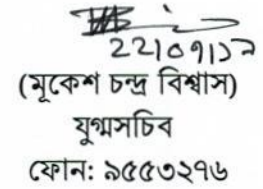 (মূকেশ চন্দ্র বিশ্বাস)
যুগ্মসচিব
ফোন: ৯৫৫৩২৭৬